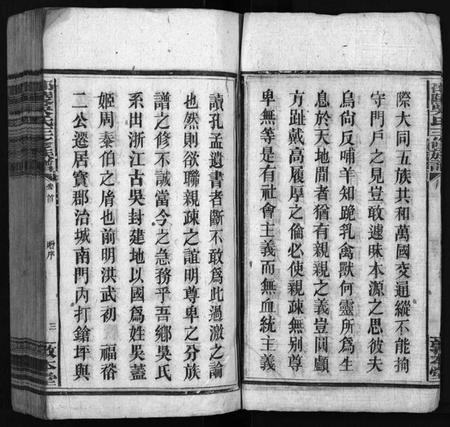 際大同五族共和萬國交通縱不能拘
守門戶之見豈敢遽昧本源之思彼夫
烏尚反哺羊知跪乳禽獸何靈所為生
息於天地間者猶有親親之義豈圓顱
方趾戴高履厚之倫必使親疎無別尊
卑無等是有社會主義而無血統主義
讀孔孟遺書者斷不敢為此過激之論
也然則欲聯親疎之誼明尊卑之分族
譜之修不誠當今之急務乎吾鄉吳氏
系出浙江古吳封建地以國為姓吳蓋
姬周泰伯之裔也前明洪武初 福裕
二公遷居寶郡治城南門內打鎗坪與
卷首
附序
三
敦本堂